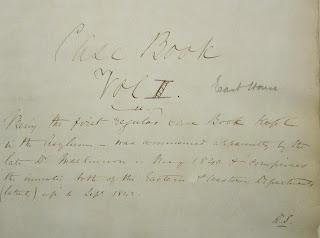 Case Book
Vol II.
East House
Being the first regular Case Book Kept
in the Asylum – was commenced apparently by the
late Dr Mackinnon in May 1840 & comprises
the inmates both of the Eastern & Western Departments
up to Sept 1842.